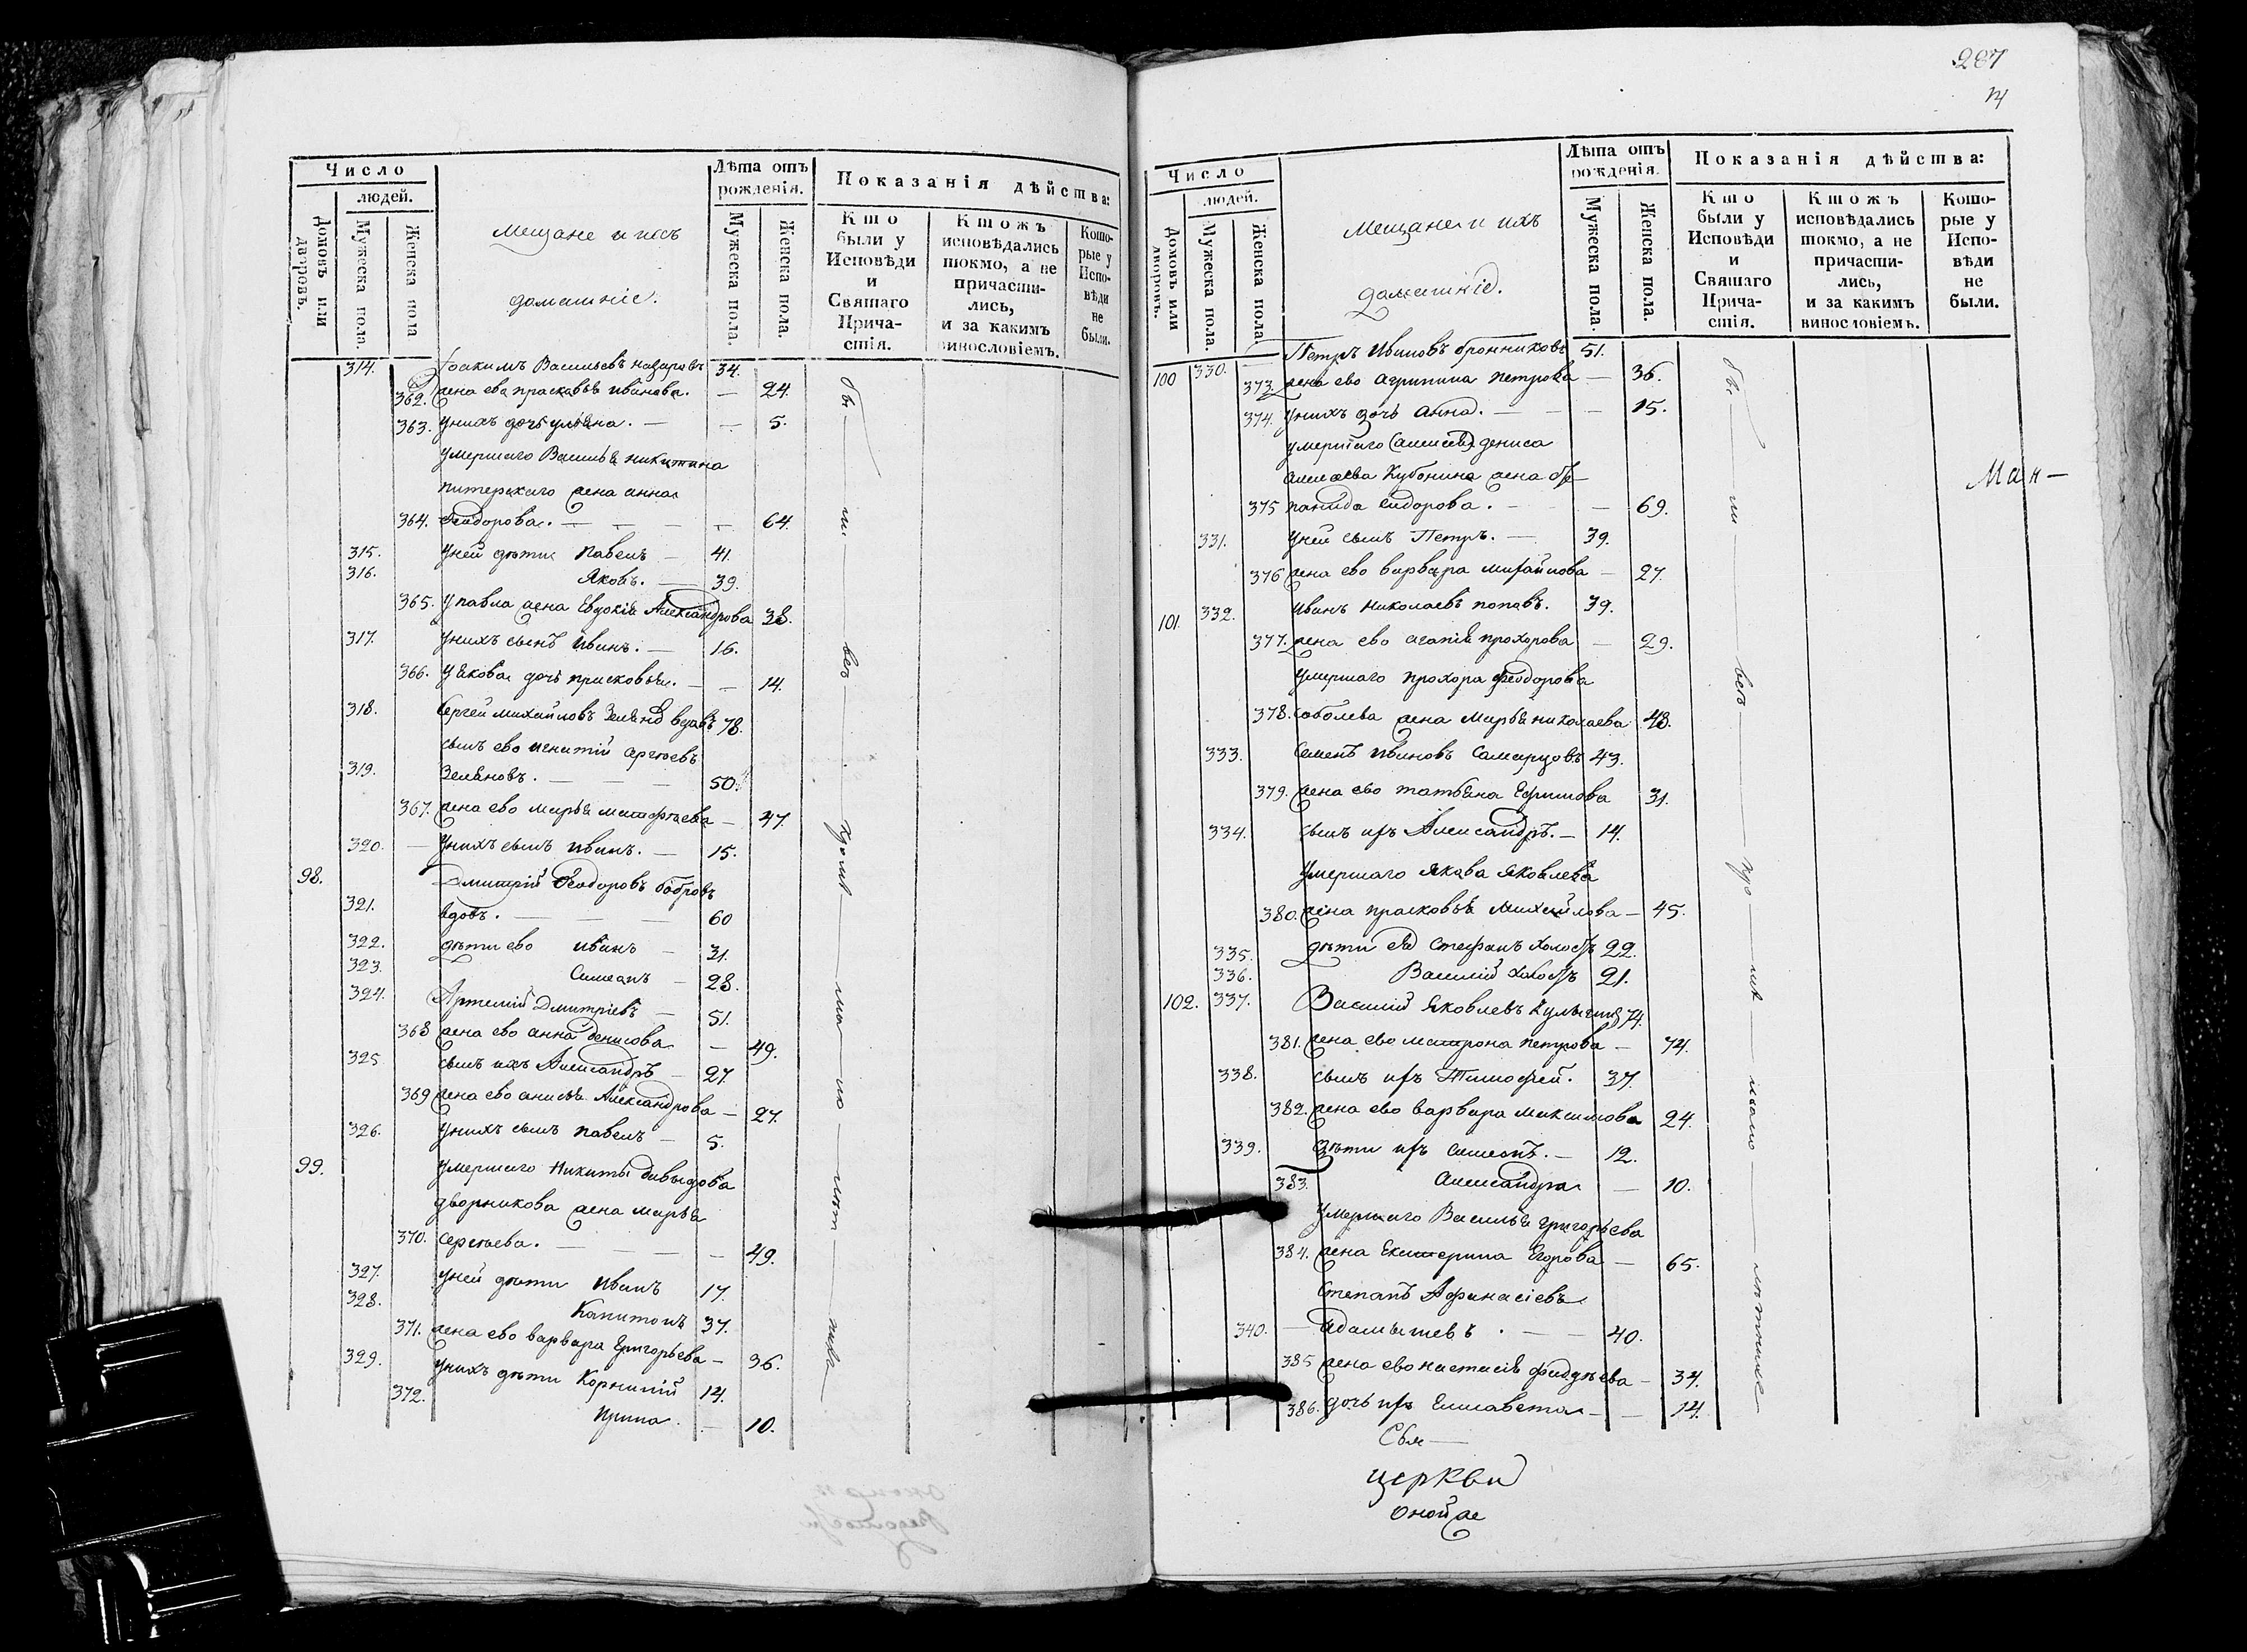 Число
людей.
Домовъ или дворовъ.
Мужеска пола.
Женска пола
мещане и ихъ
домашніе.
Лѣта отъ рожденія.
Мужеска пола.
Женска пола.
Показанія дѣйства:
Кто были у Исповѣди и Святаго Причастія.
Ктожъ исповѣдались токмо, а не причастились, и за какимъ винословіемъ.
Которые у Исповѣди не были.
314. Іоакимъ Васильевъ назаровъ 34.
362. жена ева праскавья иванова. — 24.
363. унихъ дочь ульяна. — — 5.
умершаго Василья никитина
питерскаго жена анна
364. Феидорова. — — — — 64.
315. уней дѣти Павелъ — 41.
316. Яковъ. — 39.
365. у павла жена Евдокія Александрова 38.
317. унихъ сынъ иванъ. — 16.
366. у якова дочь прасковья. — — 14.
318. Сергей михайловъ Зеляно вдовъ 78.
сынъ ево игнатій сергѣевъ
319. Зеляновъ. — — — 50.
367. жена ево марья матфѣева — 47.
320. — унихъ сынъ иванъ. — 15.
98. Дмитрій Феодоровъ бобровъ
321. вдовъ. — — — 60
322. дѣти ево иванъ — 31.
323. Симеонъ — 28.
324. Артемій Дмитріевъ — 51.
368 жена ево анна денисова — 49.
325 сынъ ихъ Александръ — 27.
369 жена ево анисья Александрова — 27.
326. унихъ сынъ павелъ — 5.
99. умершаго Никиты давыдова
дворникова жена марья
370. сергѣева. — — — — 49.
327. уней дѣти иванъ 17.
328. Капитонъ 37.
371. жена ево варвара Григорьева — 36.
329. унихъ дѣти Корнилій 14.
372. Ирина. — 10.
287
Число
людей.
Домовъ или дворовъ.
Мужеска пола.
Женска пола
мещане и ихъ
домашніе.
Лѣта отъ рожденія.
Мужеска пола.
Женска пола.
Показанія дѣйства:
Кто были у Исповѣди и Святаго Причастія.
Ктожъ исповѣдались токмо, а не причастились, и за какимъ винословіемъ.
Которые у Исповѣди не были.
100 330. — Петръ Ивановъ бронниковъ 51.
373. жена ево агрипина петрова — 36.
374. унихъ дочь анна. — — — 15.
умершаго дениса
алексѣева Кубонина жена
375 сидорова. — — 69.
331. уней сынъ Петръ. — 39.
376 жена ево варвара михайлова — 27.
101. 332. иванъ николаевъ поповъ. 39.
377. жена ево агапія прохорова — 29.
умершаго прохора феодорова
378. соболева жена марья николаева 48.
333. семенъ ивановъ Самарцовъ 43.
379. жена ево татьяна Ефимова 31.
334. сынъ ихъ Александръ. — 14.
умершаго якова яковлева
380. жена прасковья михайлова — 45.
335. дѣти ея Стефанъ холостъ 22.
336. Василій холостъ 21.
102. 337. Василій яковлевъ 74.
381. жена ево матрона петрова — 74.
338. сынъ ихъ Тимофей. 37.
382. жена ево варвара максимова 24.
339. дѣти ихъ симеонъ. — 12.
383. александра — 10.
умершаго Василья григорьева
384. жена Екатерина Егорова — 65.
Степанъ Афанасіевъ
340. — адамышевъ. — — 40.
385 жена ево настасія фадѣева — 34.
386. дочь ихъ Елисавета — — 14.
Ман—
церкви
онойже